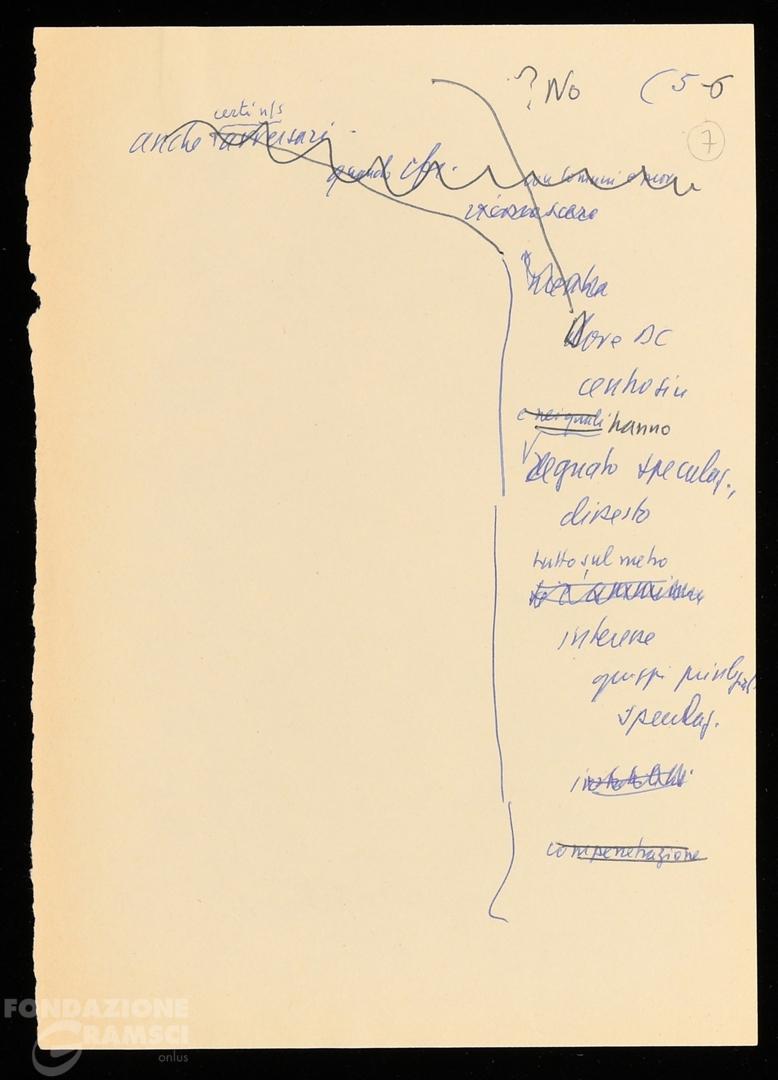 ? No (5-6
7
certi n/s
anche avversari
quando
Mentre
dove DC
centrosin
e nei quali hanno
regnato speculaz.,
disesto
tutto sul metro
interesse
gruppi privileg.
speculaz.
compenetrazione
FONDAZIONE
GRAMSCI
onlus